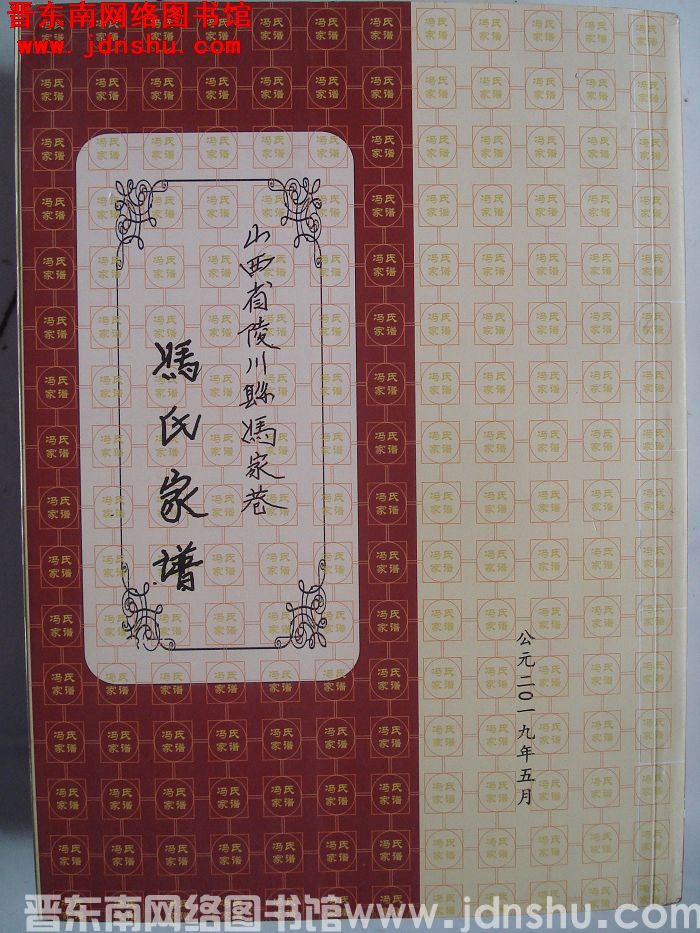 晋东南网络图书馆
www.jdnshu.com
山西省陵川縣馮家巷
馮氏家譜
公元二〇一九年五月
冯氏家谱
晋东南网络图书馆www.jdnshu.com